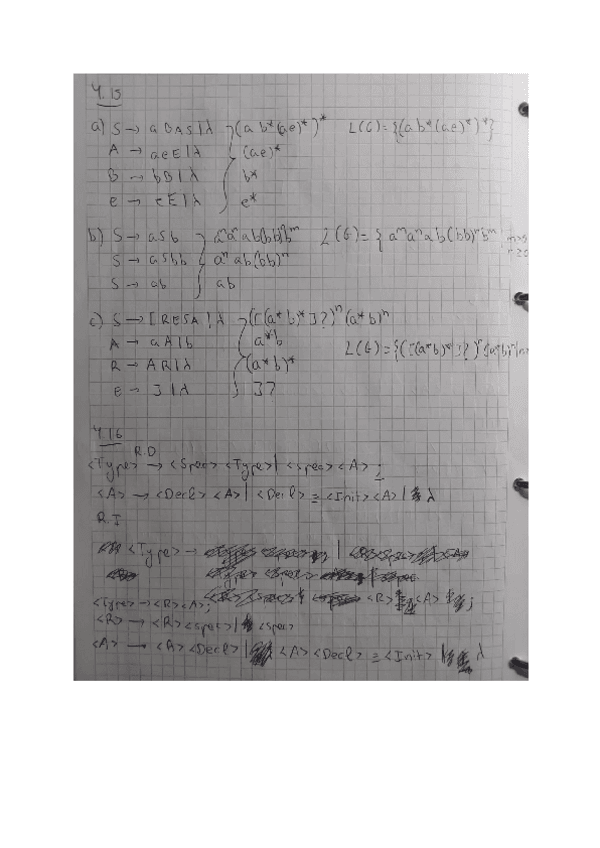 4.15
a) S → aBAS|λ (ab*(ae)*)* L(G)={(ab*(ae)*)*}
A → aeE|λ (ae)*
B → bB|λ b*
E → eE|λ e*
b) S → aSb aⁿaⁿab(bb)ⁿbᵐ L(G)={aᵐaⁿab(bb)ⁿbᵐ
S → aSbb aⁿab(bb)ⁿ
S → ab ab
c) S → [RESA|λ ([(a*b)*]?)ⁿ(a*b)ⁿ
A → aA|b a*b
R → AR|λ (a*b)* L(G)={([(a*b)*]?)ⁿ(a*b)ⁿ
E → ]|λ ]?
4.16
R.D
<Type> → <Spec><Type>|<spec><A>;
<A> → <Decl><A>|<Decl>=<Init><A>|λ
R.I
<Type> →
<Type> → <R><A>; <R> <A> ;
<R> → <R><spec>|<spec>
<A> → <A><Decl>| <A><Decl>=<Init>| λ